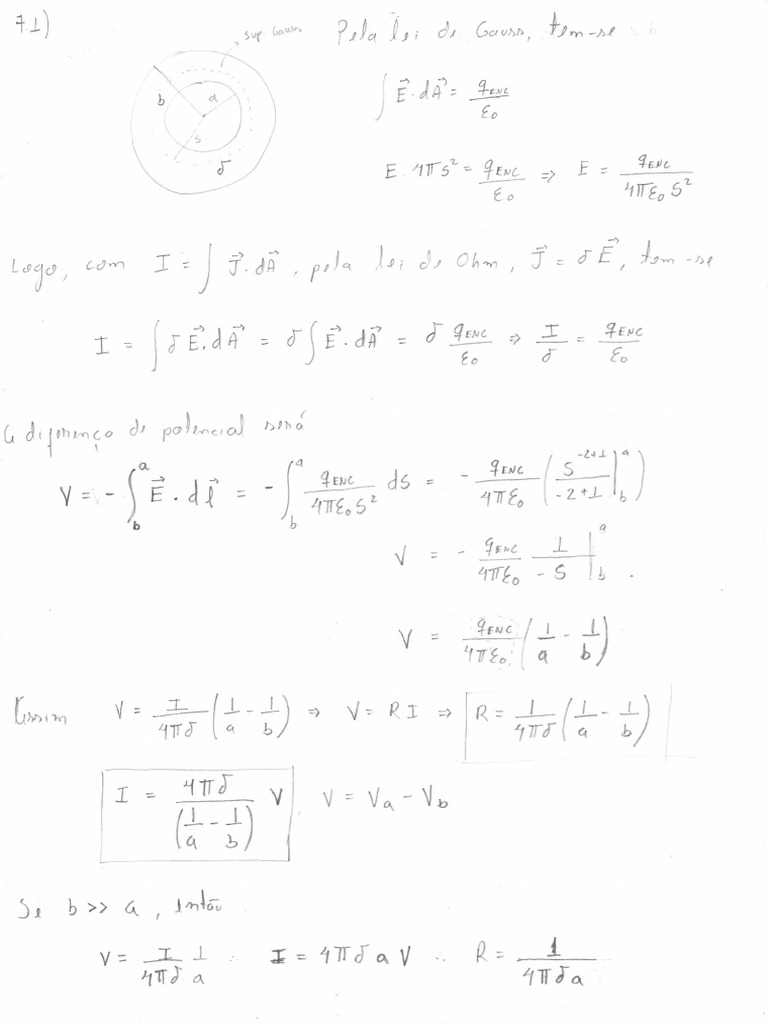 7.1)
sup. Gauss
b
a
s
σ
Pela lei de Gauss, tem-se
∫ E⃗·dA⃗ = qENC/ε0
E. 4πs² = qENC/ε0 ⇒ E = qENC/(4πε0 s²)
Logo, com I = ∫ J⃗·dA⃗, pela lei de Ohm, J⃗ = σE⃗, tem-se
I = ∫ σE⃗·dA⃗ = σ∫ E⃗·dA⃗ = σ qENC/ε0 ⇒ I/σ = qENC/ε0
A diferença de potencial será
V = -∫_b^a E⃗·dl⃗ = -∫_b^a qENC/(4πε0 s²) ds = - qENC/(4πε0) (s^(-2+1)/(-2+1) |_b^a)
V = - qENC/(4πε0) 1/(-s) |_b^a .
V = qENC/(4πε0) (1/a - 1/b)
Assim V = I/(4πσ) (1/a - 1/b) ⇒ V = RI ⇒ R = 1/(4πσ) (1/a - 1/b)
I = 4πσ/(1/a - 1/b) V , V = Va - Vb
Se b >> a, então
V = I/(4πσ) 1/a ∴ I = 4πσaV ∴ R = 1/(4πσa)